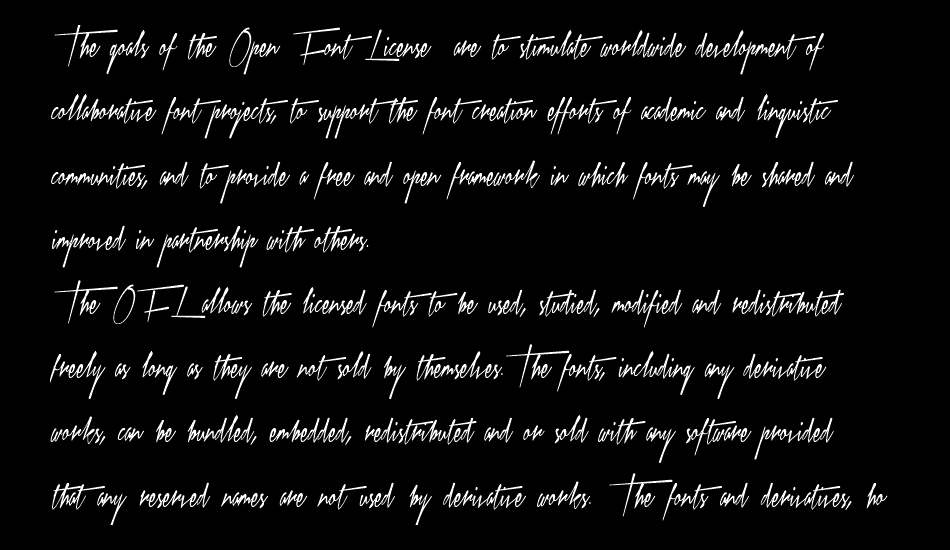 The goals of the Open Font License are to stimulate worldwide development of
collaborative font projects, to support the font creation efforts of academic and linguistic
communities, and to provide a free and open framework in which fonts may be shared and
improved in partnership with others.
The OFL allows the licensed fonts to be used, studied, modified and redistributed
freely as long as they are not sold by themselves. The fonts, including any derivative
works, can be bundled, embedded, redistributed and or sold with any software provided
that any reserved names are not used by derivative works. The fonts and derivatives, ho